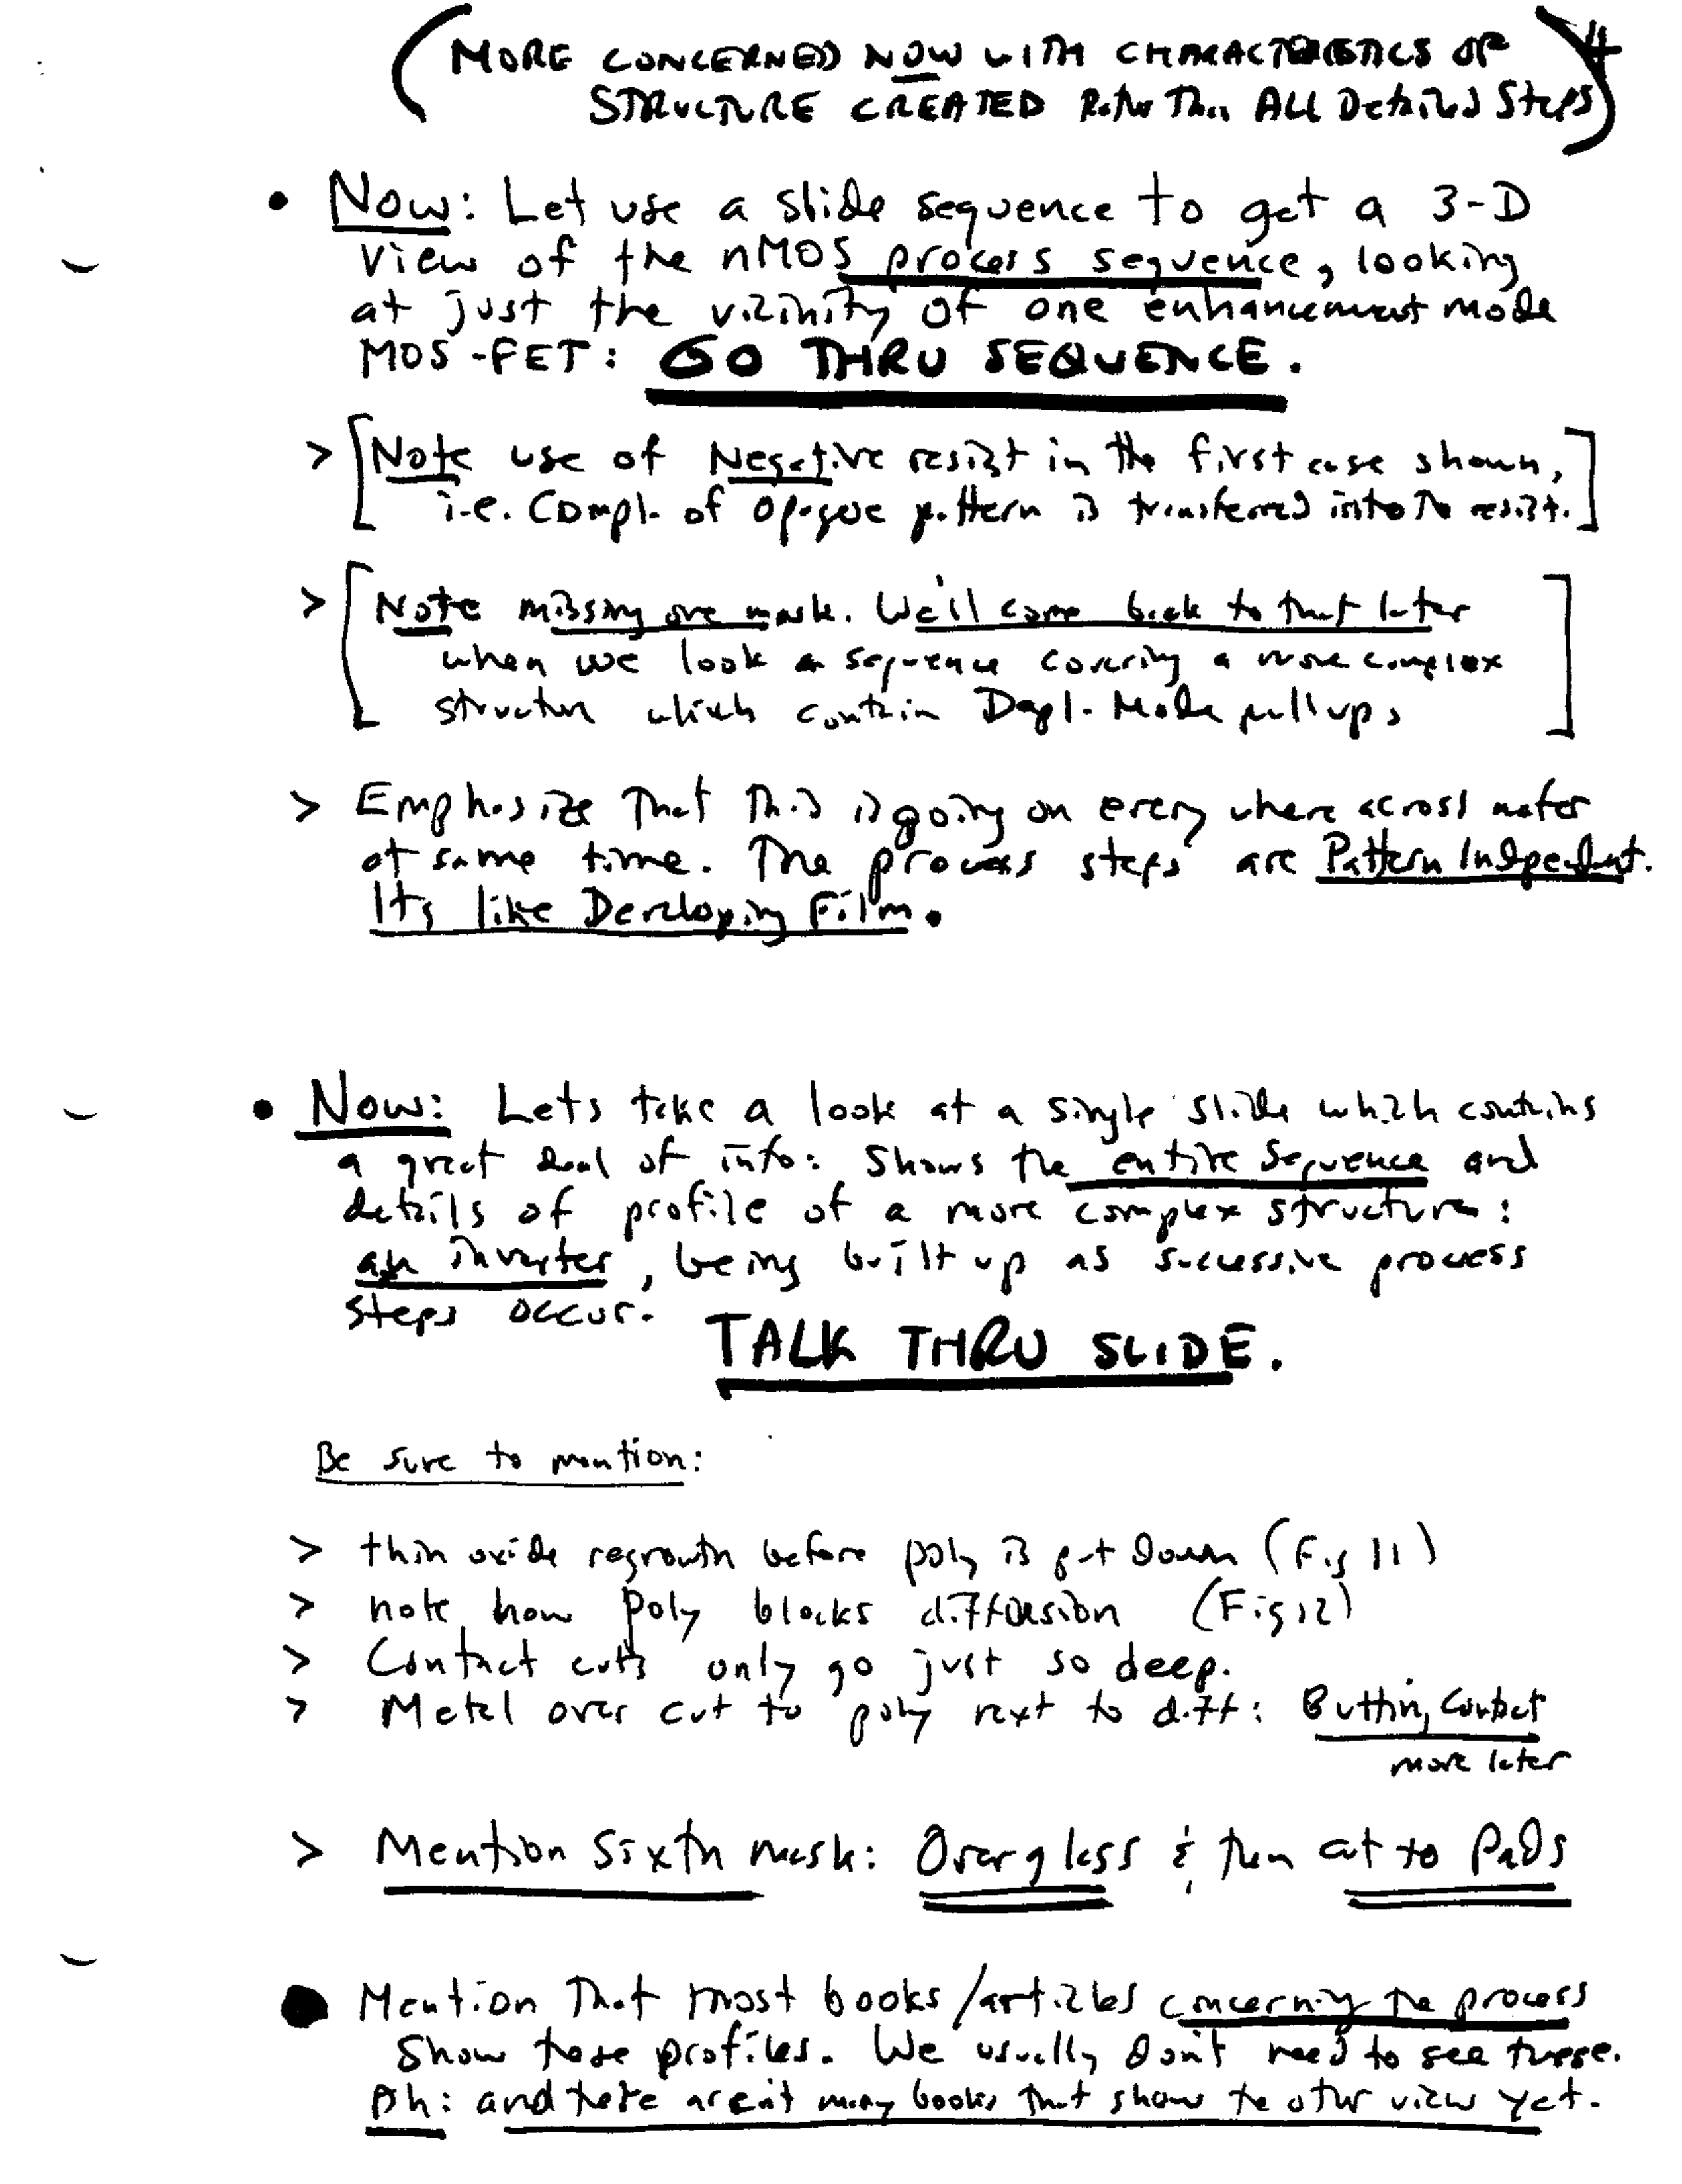 (MORE CONCERNED NOW WITH CHARACTERISTICS OF 4
STRUCTURE CREATED Rather Than ALL Detailed Steps)
• Now: Let use a slide sequence to get a 3-D
view of the nMOS process sequence, looking
at just the vicinity of one enhancement mode
MOS-FET: GO THRU SEQUENCE.
> [Note use of Negative resist in the first case shown,
i.e. Compl. of Opaque pattern is transferred into the resist.]
> [Note missing one mask. We'll come back to that later
when we look a sequence covering a more complex
structure which contain Depl. Mode pullups]
> Emphasize That This is going on every where across wafer
at same time. The process steps are Pattern Indpendent.
Its like Developing Film.
• Now: Lets take a look at a single slide which contains
a great deal of info: Shows the entire sequence and
details of profile of a more complex structure:
an inverter, being built up as successive process
steps occur.
TALK THRU SLIDE.
Be sure to mention:
> thin oxide regrowth before poly is put down (Fig 11)
> note how poly blocks diffusion (Fig 12)
> Contact cuts only go just so deep.
> Metal over cut to poly next to diff: Butting Contact
more later
> Mention Sixth mask: Overglass & then cut to Pads
• Mention That most books/articles concerning the process
Show these profiles. We usually don't need to see these.
Ah: and there aren't many books that show the other view yet.